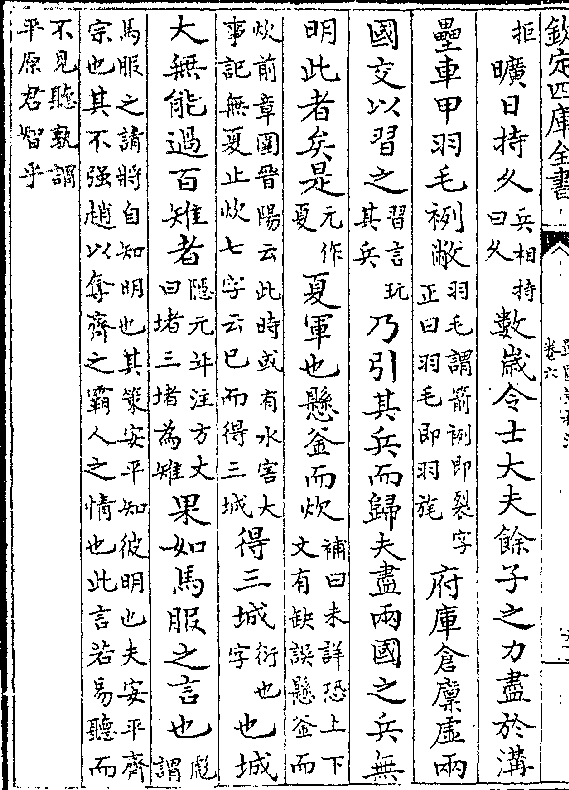 欽定四庫全書
卷六
拒曠日持久兵相持曰久數歲令士大夫餘子之力盡於溝
壘車甲羽毛敝羽毛謂箭即裂字正曰羽毛即羽旄府庫倉廩虛兩
國交以習之習言玩其兵乃引其兵而歸夫盡兩國之兵無
明此者矣是元作夏夏軍也懸釜而炊補曰未詳恐上下文有缺誤懸釜而
炊前章圍晉陽云此時或有水害大事記無夏止炊七字云已而得三城得三城衍也字也城
大無能過百雉者隱元年注方丈曰堵三堵為雉果如馬服之言也彪謂
馬服之請將自知明也其策安平知彼明也夫安平齊宗也其不强趙以奪齊之霸人之情也此言若易聽而
不見聽孰謂平原君智乎